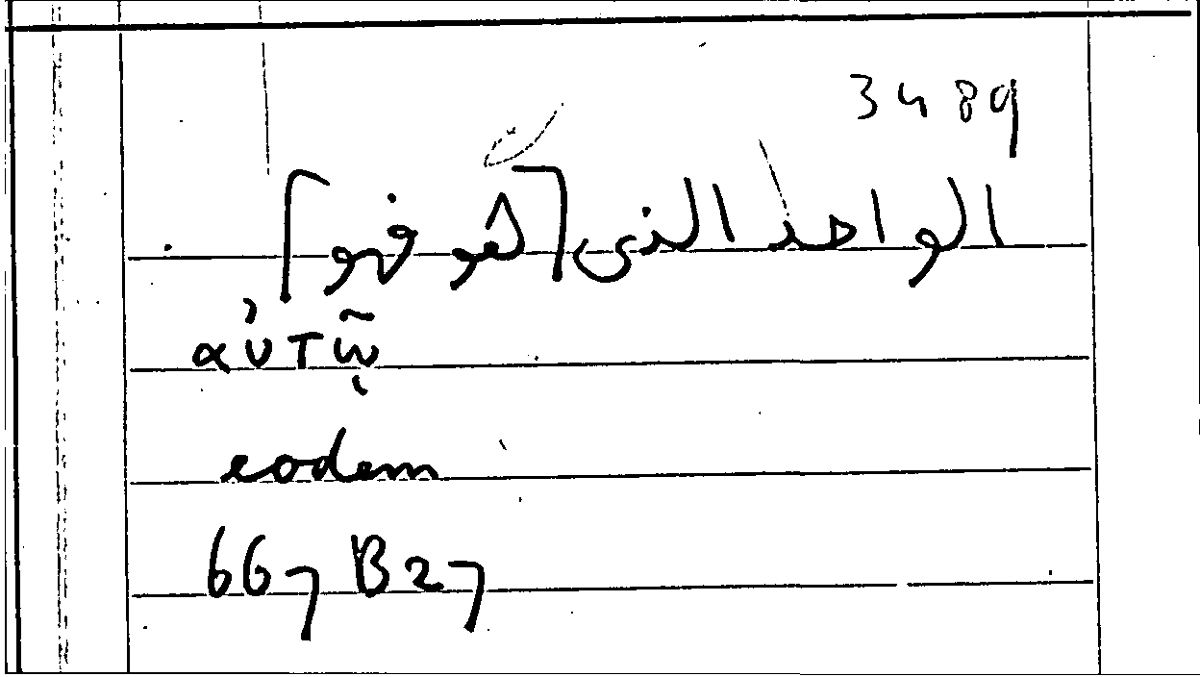 3489
الواحد الذى [هو فهو]
αὐτῷ
eodem
667 B 27